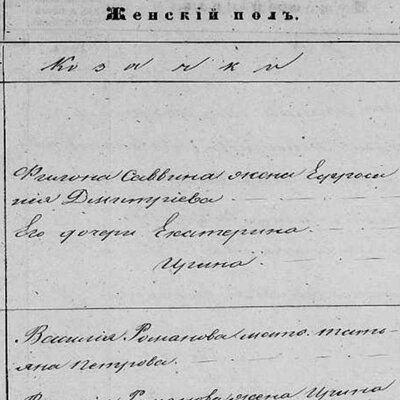 Женскій полъ.
Козачки
Филона Саввина жена Ефроси
нія Дмитріева
Его дочери Екатерина
Ирина
Василія Романова мать Тать-
яна Петрова.
Романова жена Ирина